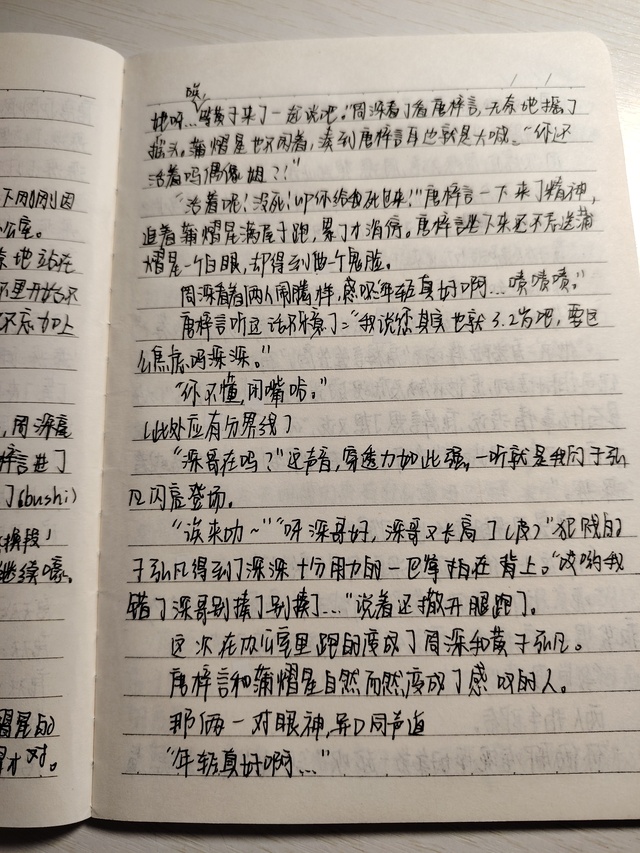 下闪闪因
公室。
奈地站在
里开始不
不忘加上
,周深竟
梓言进了
了(bushi)
换段)
继续嚎。
熠星的
才对。
唉,
她呀…等黄子来了一起说吧。"周深看了看唐梓言,无奈地摇了
摇头。蒲熠星也不闲着,凑到唐梓言耳边就是大喊:"你还
活着吗偶像姐?!"
"活着呢!没死!叫你给我死也来!"唐梓言一下来了精神,
追着蒲熠星满屋子跑,累了才消停。唐梓言坐下来还不忘送蒲
熠星一个白眼,却得到他一个鬼脸。
周深看着俩人闹腾样,感叹"年轻真好啊…啧啧啧。"
唐梓言听这话不乐意了:"我说您其实也就3.2岁吧,要这
么焦虑吗深深。"
"你不懂,闭嘴咔。"
(此处应有分界线)
"深哥在吗?"这声音,穿透力如此强,一听就是我闪子弘
凡闪亮登场。
"诶来叻~""呀深哥好,深哥又长高了(皮)"犯贱的
子弘凡得到了深深十分用力的一巴掌拍在背上。"哎哟我
错了深哥别揍了别揍了…"说着还撒开腿跑了。
这次在办公室里跑的变成了周深和黄子弘凡。
唐梓言和蒲熠星自然而然变成了感叹的人。
那俩一对眼神,异口同声道
"年轻真好啊…"